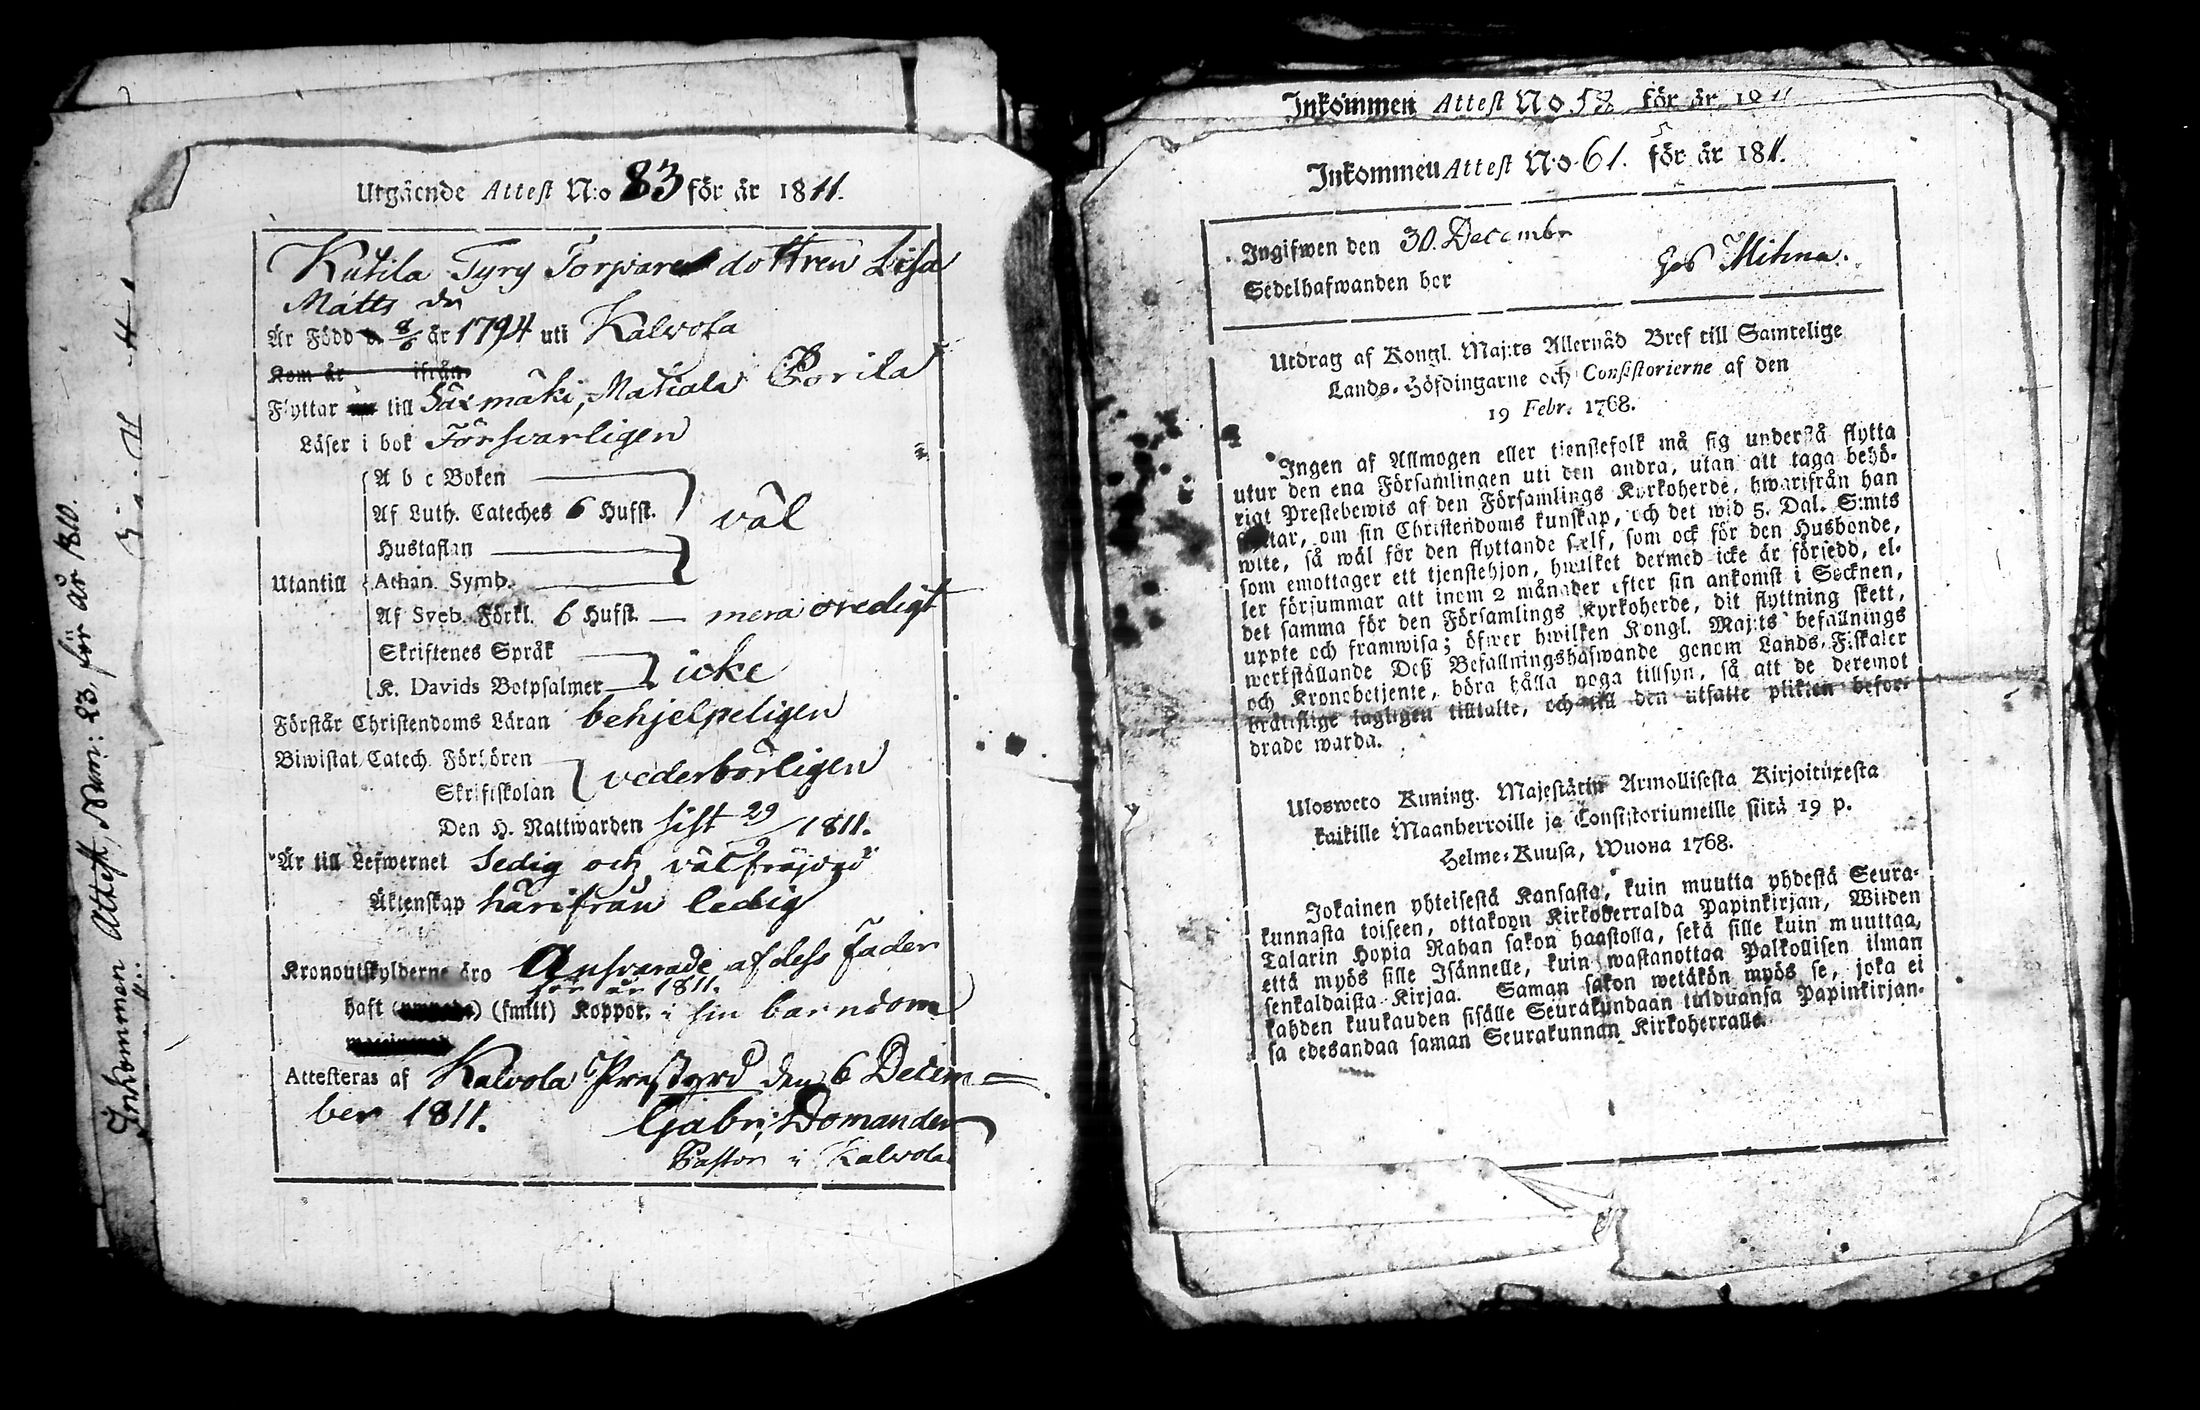 Inkommen Attest, Num: 23, för år 1810.
Utgående Attest N:o 83 för år 1811.
Kutila Tyry Torpare dottren Lisa
Matts dr
Är Född d. 8/6 år 1794 uti Kalvola
Kom år ifrån
Flyttar till Säxmäki, Matiala Porila
Läser i bok Försvarligen
A b c Boken
Af Luth. Cateches 6 Hufst. väl
Hustaflan
Utantill Athan. Symb.
Af Sveb. Förkl. 6 Hufst. — mera oredigt
Skriftenes Språk
K. Davids Botpsalmer icke
Förstår Christendoms Läran behjelpeligen
Biwistat Catech. Förhören
Skriftskolan vederbörligen
Den H. Nattwarden sist 29/9 1811.
Är till Lefwernet Sedig och välfräjdad
Äktenskap härifrån ledig
Kronoutskylderne äro Ansvarade af dess fader
för år 1811.
haft (smitt) Koppor. i sin barndom
Attesteras af Kalvola Prestgård den 6 Decem-
ber 1811. Gabr. Domander
Pastor i Kalvola
Inkommen Attest No 58 för år 1811
Inkommen Attest N:o 61. för år 1811.
Ingifwen den 30. Decembr
Sedelhafwanden bor hos Mihna.
Utdrag af Kongl. Maj:ts Allernåd Bref till Samtelige
Lands-Höfdingarne och Consistorierne af den
19 Febr. 1768.
Ingen af Allmogen eller tjenstefolk må sig understå flytta
utur den ena Församlingen uti den andra, utan att taga behö-
rigt Prestebewis af den Församlings Kyrkoherde, hwarifrån han
flyttar, om sin Christendoms kunskap, och det wid 5. Dal. S:mts
wite, så wäl för den flyttande sielf, som ock för den Husbonde,
som emottager ett tjenstehjon, hwilket dermed icke är försedd, el-
ler försummar att inom 2 månader efter sin ankomst i Socknen,
det samma för den Församlings Kyrkoherde, dit flyttning skett,
uppte och framwisa; öfwer hwilken Kongl. Maj:ts befallnings
werkställande Deß Befallningshafwande genom Lands-Fiskaler
och Kronobetjente, böra hålla noga tillsyn, så att de deremot
bråttslige lagligen tilltalte, och till den utsatte plikten befor-
drade warda.
Ulosweto Kuning. Majestätin Armollisesta Kirjoituxesta
kaikille Maanherroille ja Consistoriumeille siitä 19 p.
Helme-Kuusa, Wuona 1768.
Jokainen yhteisestä Kansasta, kuin muutta yhdestä Seura-
kunnasta toiseen, ottakoon Kirkoherralda Papinkirjan, Wiiden
Talarin Hopia Rahan sakon haastolla, sekä sille kuin muuttaa,
että myös sille Isännelle, kuin wastanottaa Palkollisen ilman
senkaldaista Kirjaa. Saman sakon wetäkön myös se, joka ei
kahden kuukauden sisälle Seurakundaan tulduansa Papinkirjan-
sa edesandaa saman Seurakunnan Kirkoherralle.